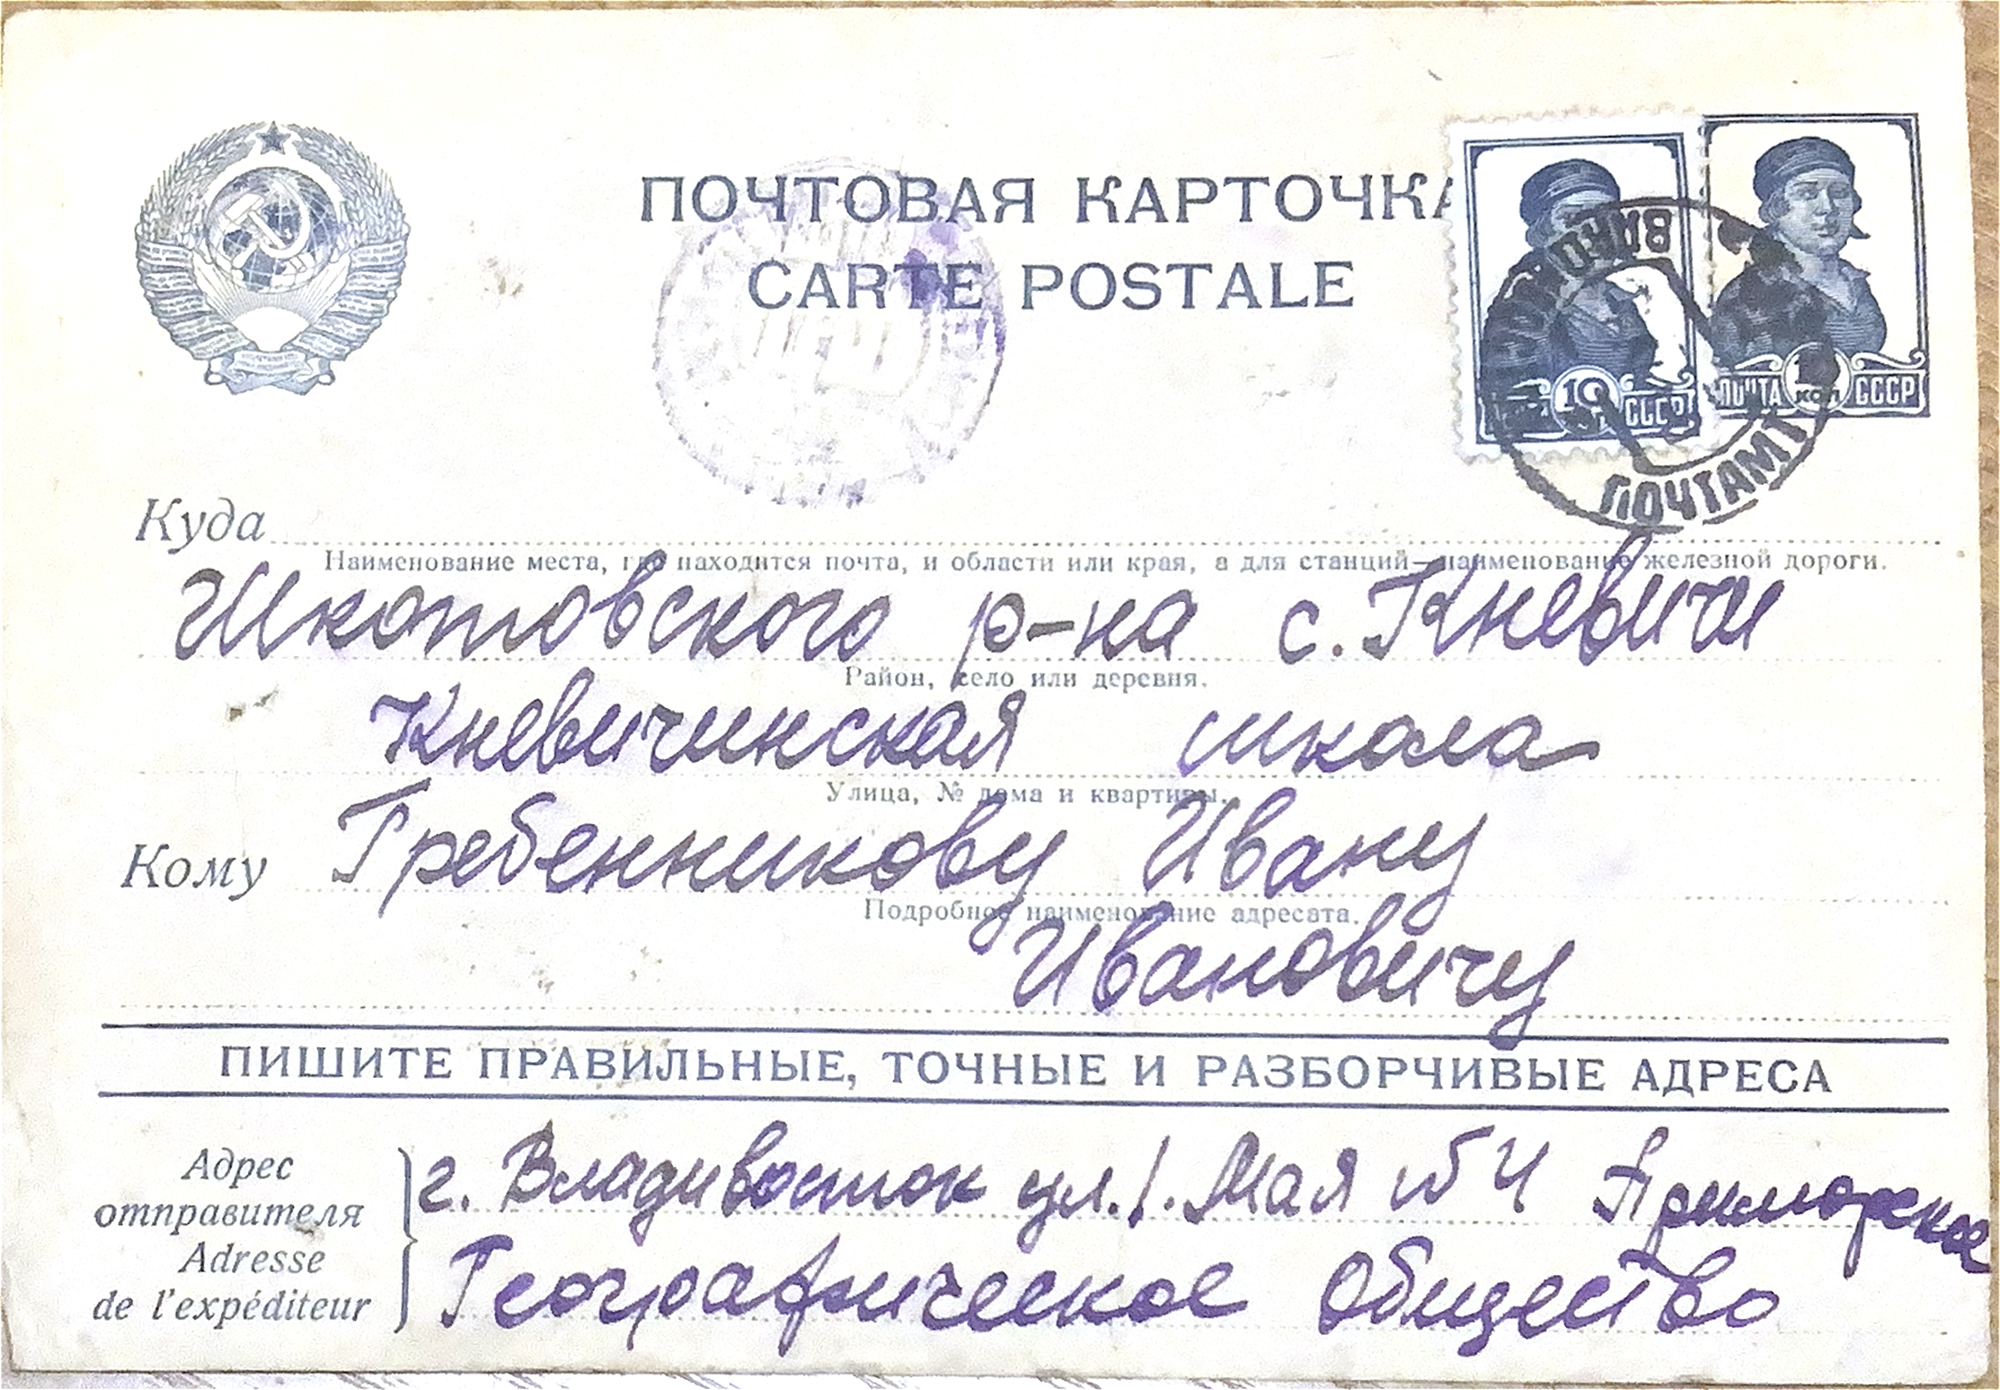 ПОЧТОВАЯ КАРТОЧКА
CARTE POSTALE
10
СССР
ПОЧТА КОП СССР
ПОЧТАМТ
Куда
Наименование места, где находится почта, и области или края, а для станций—наименование железной дороги.
Шкотовского р-на с. Кневичи
Район, село или деревня.
Кневичинская школа
Улица, № дома и квартиры.
Кому Гребенникову Ивану
Подробное наименование адресата.
Ивановичу
ПИШИТЕ ПРАВИЛЬНЫЕ, ТОЧНЫЕ И РАЗБОРЧИВЫЕ АДРЕСА
Адрес отправителя
Adresse de l'expéditeur
г. Владивосток ул. 1. Мая № 4 Приморское
Географическое Общество